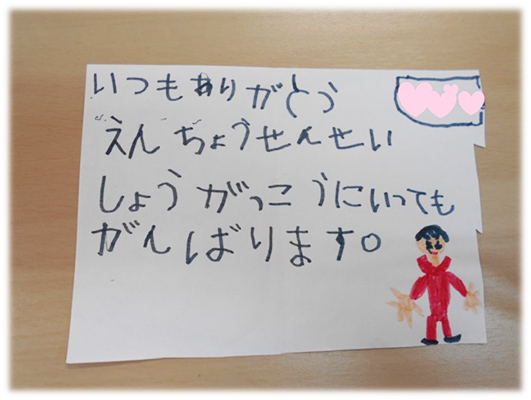 いつもありがとう
えんちょうせんせい
しょうがっこうにいっても
がんばります。